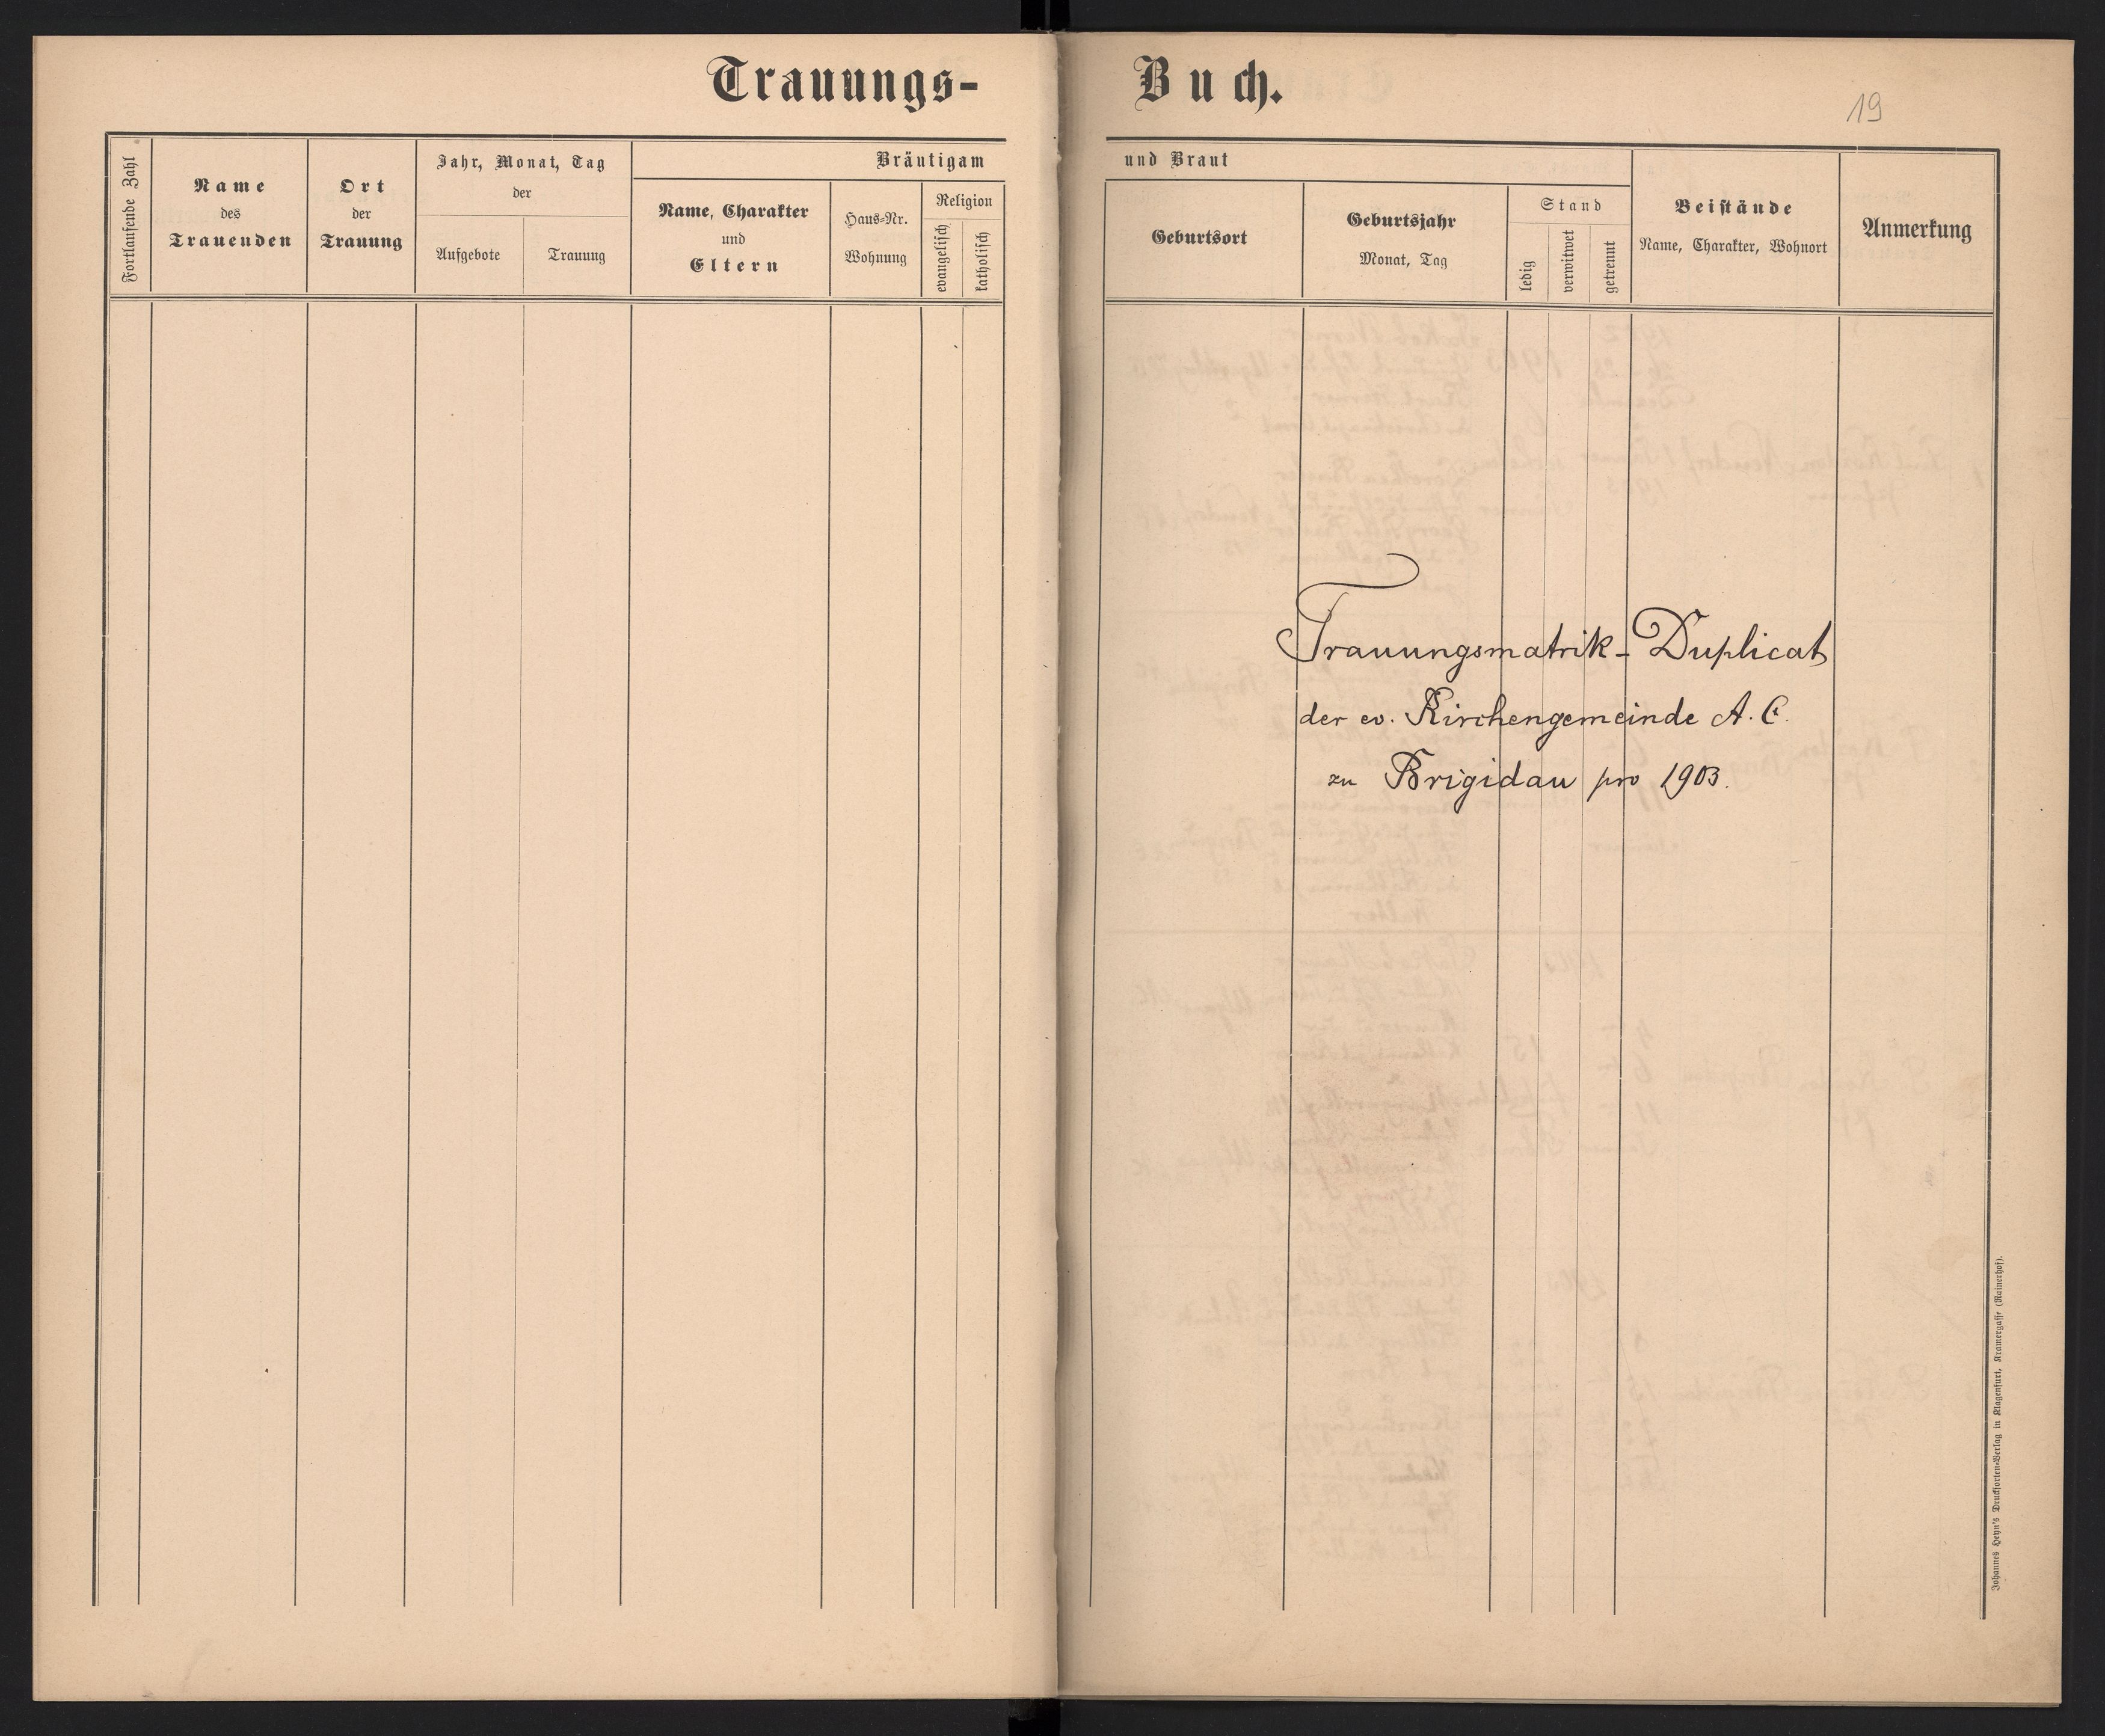 Trauungs-
Buch.
19
Fortlaufende Zahl
Name
des
Trauenden
Ort
der
Trauung
Jahr, Monat, Tag
der
Aufgebote
Trauung
Bräutigam
Name, Charakter
und
Eltern
Haus-Nr.
Wohnung
Religion
evangelisch
katholisch
und Braut
Geburtsort
Geburtsjahr
Monat, Tag
Stand
ledig
verwitwet
getrennt
Beistände
Name, Charakter, Wohnort
Anmerkung
Trauungsmatrik-Duplicat
der ev. Kirchengemeinde A. C.
zu Brigidau pro 1903.
Johannes Heyn's Drucksorten-Verlag in Klagenfurt, Kramergasse (Rainerhof).